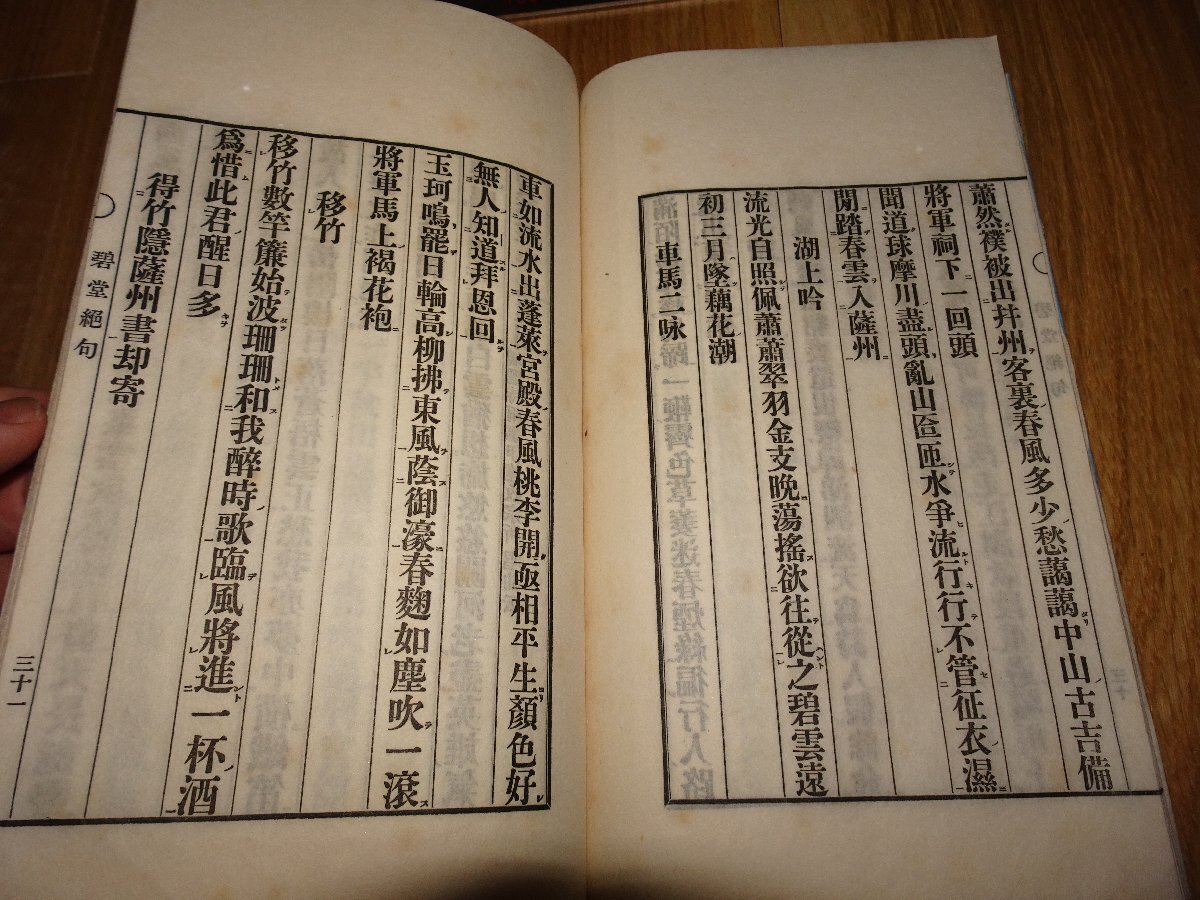 蕭然襆被出幷州客裏春風多少愁藹藹中山古吉備
將軍祠下一回頭
聞道球摩川盡頭亂山匼匝水爭流行行不管征衣濕
閒踏春雲入薩州
湖上吟
流光自照佩蕭蕭翠羽金支晩蕩搖欲往從之碧雲遠
初三月墜藕花潮
車馬二咏
車如流水出蓬萊宮殿春風桃李開亟相平生顏色好
無人知道拜恩回
玉珂鳴罷日輪高柳拂東風蔭御濠春麴如塵吹一滾
將軍馬上褐花袍
移竹
移竹數竿簾始波珊珊和我醉時歌臨風將進一杯酒
爲惜此君醒日多
得竹隱薩州書却寄
碧堂絕句
三十一